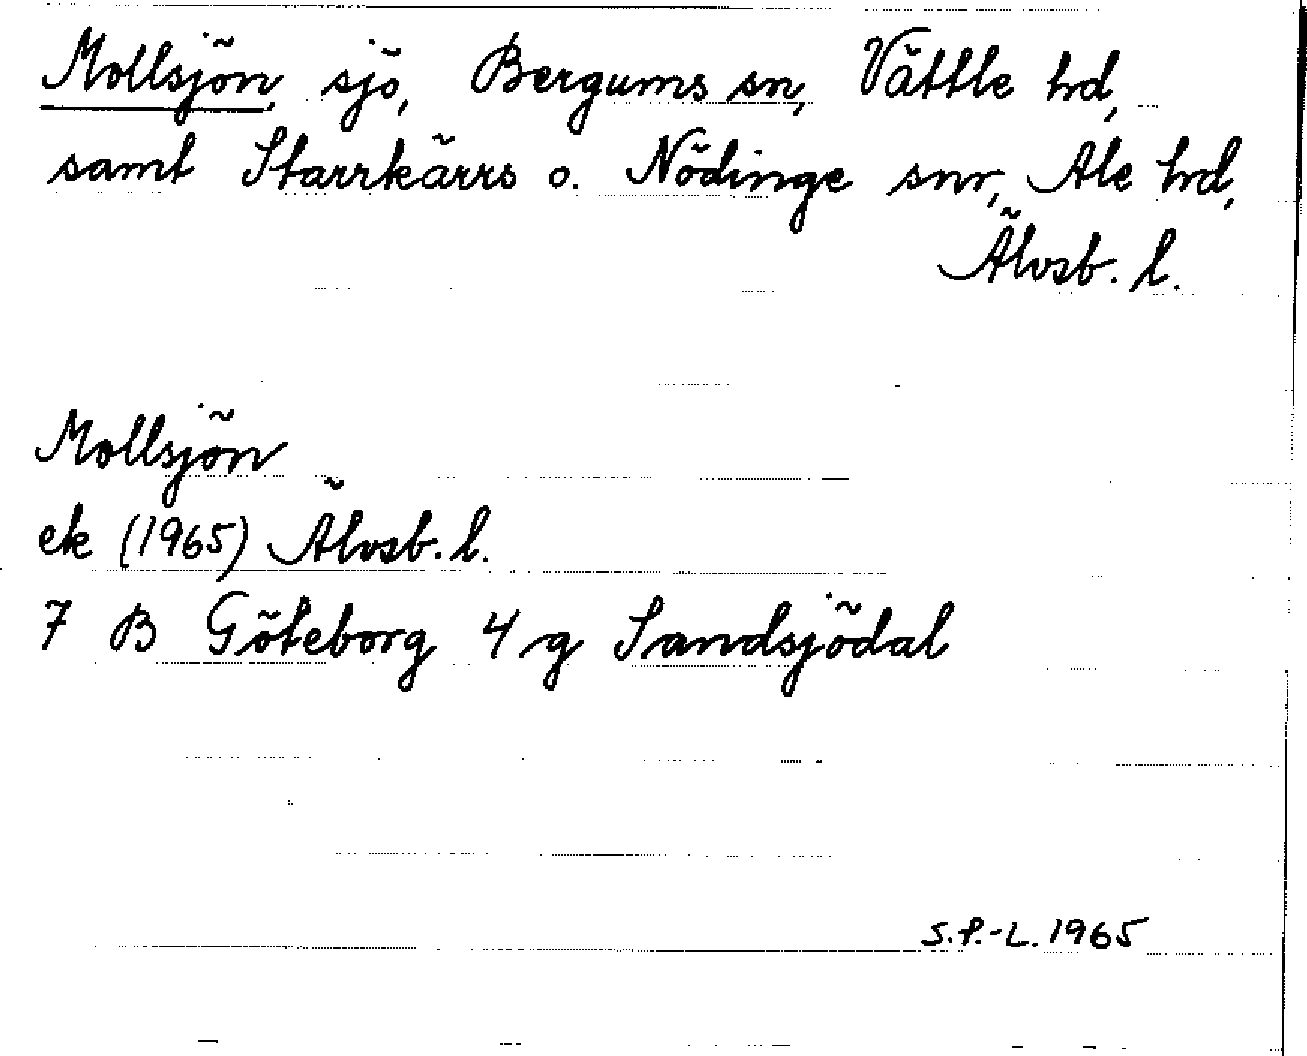 Mollsjön, sjö, Bergums sn, Vättle hd,
samt Starrkärrs o. Nödinge snr, Ale hd,
Älvsb. l.
Mollsjön
ek (1965) Älvsb. l.
7 B Göteborg 4 g Sandsjödal
S.P.-L. 1965